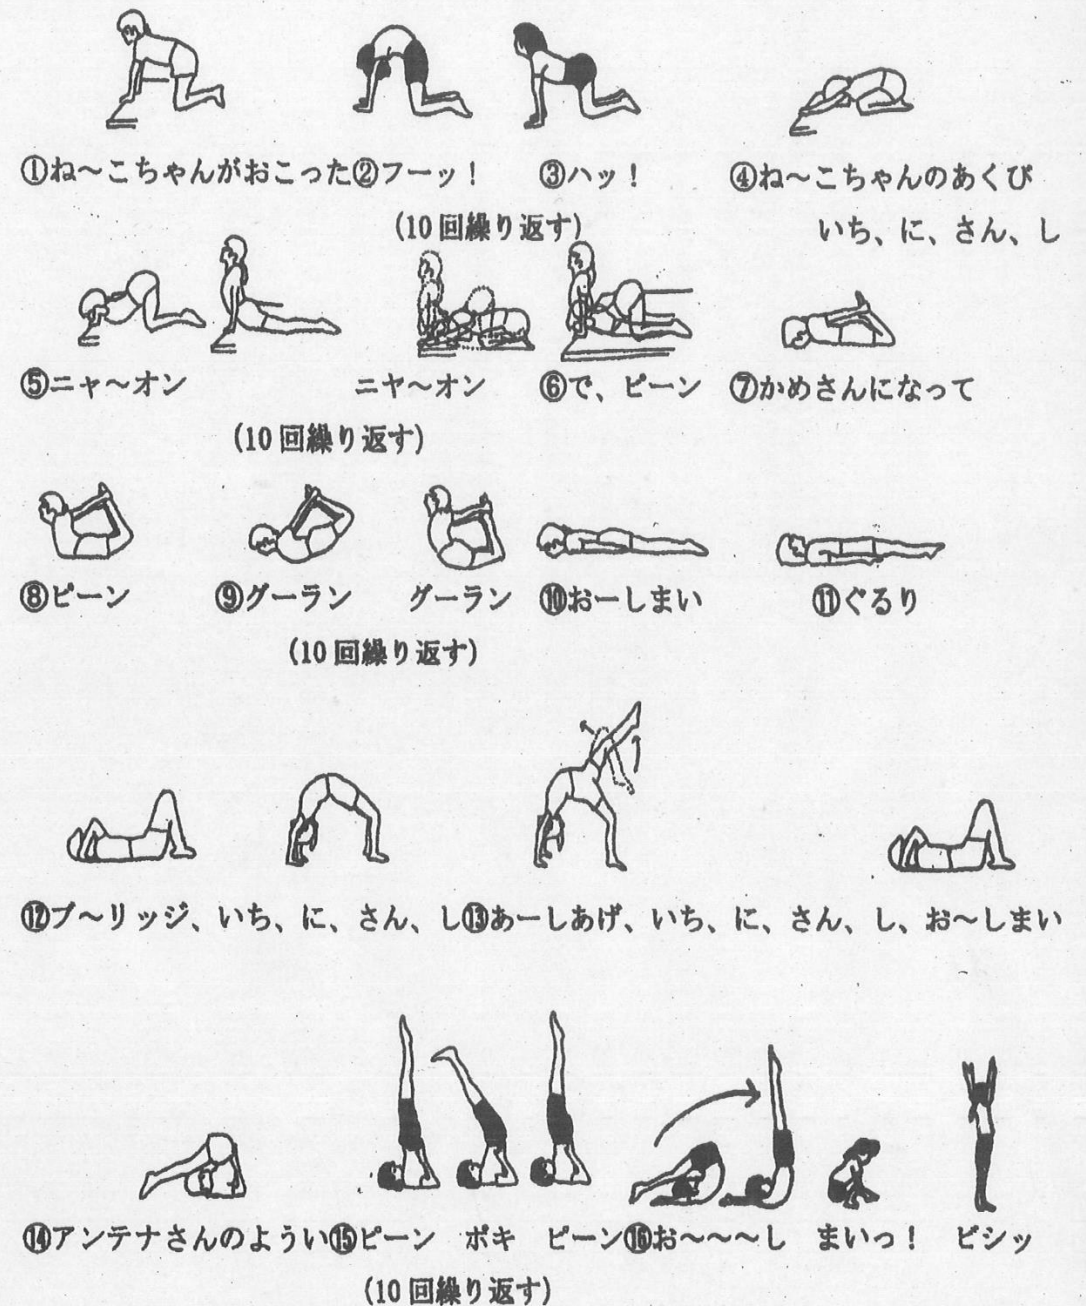 ①ね～こちゃんがおこった②フーッ！　③ハッ！　④ね～こちゃんのあくび
(10回繰り返す)　いち、に、さん、し
⑤ニャ～オン　ニヤ～オン　⑥で、ピーン　⑦かめさんになって
(10回繰り返す)
⑧ピーン　⑨グーラン　グーラン　⑩おーしまい　⑪ぐるり
(10回繰り返す)
⑫ブ～リッジ、いち、に、さん、し⑬あーしあげ、いち、に、さん、し、お～しまい
⑭アンテナさんのようい⑮ピーン　ポキ　ピーン⑯お～～～し　まいっ！　ビシッ
(10回繰り返す)